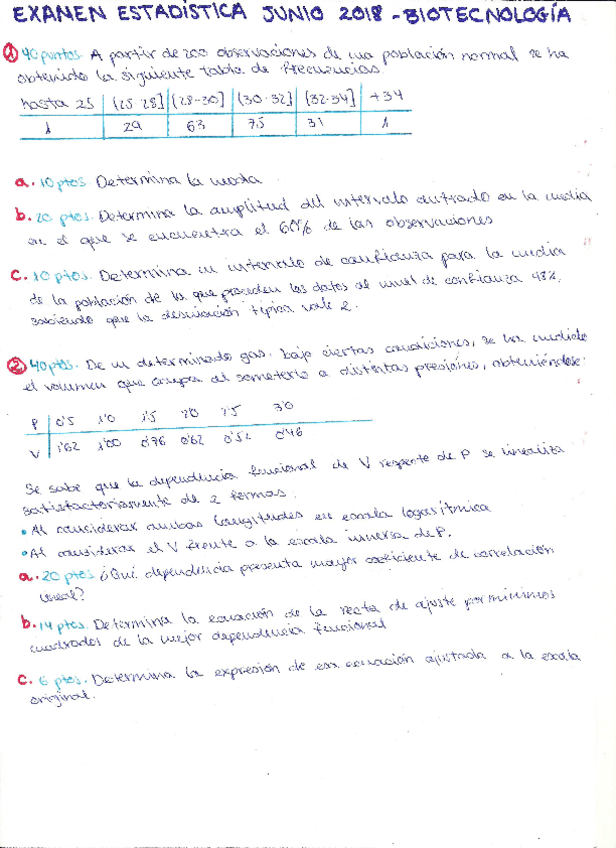 EXAMEN ESTADÍSTICA JUNIO 2018 - BIOTECNOLOGÍA
① 40 puntos. A partir de 200 observaciones de una población normal se ha
obtenido la siguiente tabla de frecuencias
hasta 25 | (25-28] | (28-30] | (30-32] | (32-34] | +34
1 | 29 | 63 | 75 | 31 | 1
a. 10 ptos. Determina la moda
b. 20 ptos. Determina la amplitud del intervalo centrado en la media
en el que se encuentra el 60% de las observaciones
c. 10 ptos. Determina un intervalo de confianza para la media
de la población de la que proceden los datos al nivel de confianza 98%,
sabiendo que la desviación típica vale 2.
② 40 ptos. De un determinado gas, bajo ciertas condiciones, se ha medido
el volumen que ocupa al someterlo a distintas presiones, obteniéndose:
P | 0'5 1'0 1'5 2'0 2'5 3'0
V | 1'62 1'00 0'76 0'62 0'52 0'46
Se sabe que la dependencia funcional de V respecto de P se linealiza
satisfactoriamente de 2 formas.
• Al considerar ambas longitudes en escala logarítmica
• Al considerar el V frente a la escala inversa de P.
a. 20 ptos ¿Qué dependencia presenta mayor coeficiente de correlación
lineal?
b. 14 ptos. Determina la ecuación de la recta de ajuste por mínimos
cuadrados de la mejor dependencia funcional
c. 6 ptos. Determina la expresión de esa ecuación ajustada a la escala
original.